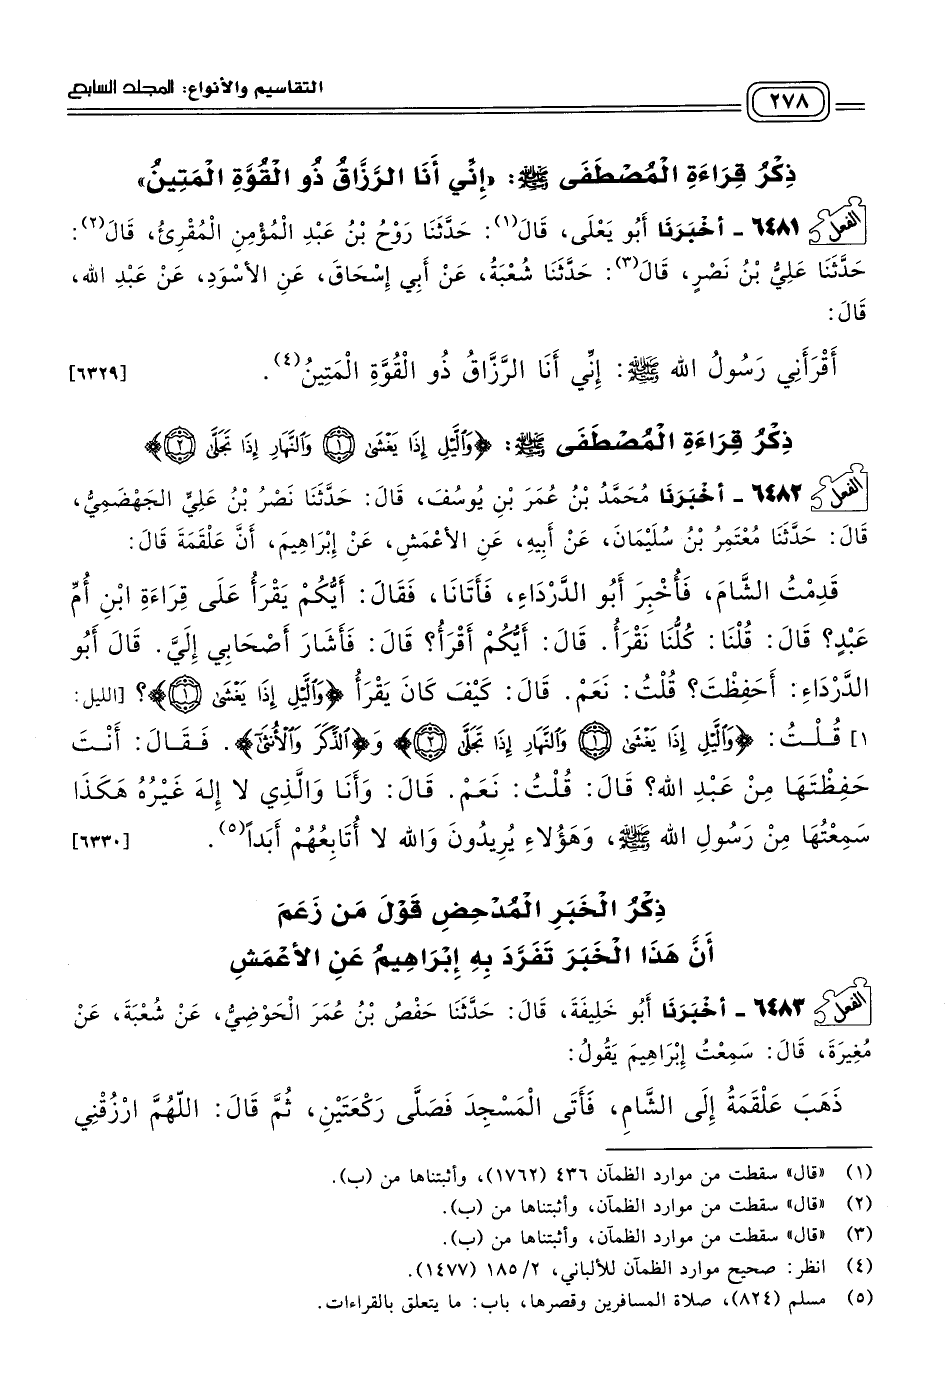 التقاسيم والأنواع: المجلد السابع
٢٧٨
ذِكْرُ قِرَاءَةِ الْمُصْطَفَى ﷺ: «إِنِّي أَنَا الرَّزَّاقُ ذُو الْقُوَّةِ الْمَتِينُ»
الفعل ٦٤٨١ - أَخْبَرَنَا أَبُو يَعْلَى، قَالَ(١): حَدَّثَنَا رَوْحُ بْنُ عَبْدِ الْمُؤْمِنِ الْمُقْرِئُ، قَالَ(٢):
حَدَّثَنَا عَلِيُّ بْنُ نَصْرٍ، قَالَ(٣): حَدَّثَنَا شُعْبَةُ، عَنْ أَبِي إِسْحَاقَ، عَنِ الأَسْوَدِ، عَنْ عَبْدِ الله،
قَالَ:
أَقْرَأَنِي رَسُولُ الله ﷺ: إِنِّي أَنَا الرَّزَّاقُ ذُو الْقُوَّةِ الْمَتِينُ(٤). [٦٣٢٩]
ذِكْرُ قِرَاءَةِ الْمُصْطَفَى ﷺ: ﴿وَٱلَّيْلِ إِذَا يَغْشَىٰ ١ وَٱلنَّهَارِ إِذَا تَجَلَّىٰ ٢﴾
الفعل ٦٤٨٢ - أَخْبَرَنَا مُحَمَّدُ بْنُ عُمَرَ بْنِ يُوسُفَ، قَالَ: حَدَّثَنَا نَصْرُ بْنُ عَلِيٍّ الجَهْضَمِيُّ،
قَالَ: حَدَّثَنَا مُعْتَمِرُ بْنُ سُلَيْمَانَ، عَنْ أَبِيهِ، عَنِ الأَعْمَشِ، عَنْ إِبْرَاهِيمَ، أَنَّ عَلْقَمَةَ قَالَ:
قَدِمْتُ الشَّامَ، فَأُخْبِرَ أَبُو الدَّرْدَاءِ، فَأَتَانَا، فَقَالَ: أَيُّكُمْ يَقْرَأُ عَلَى قِرَاءَةِ ابْنِ أُمِّ
عَبْدٍ؟ قَالَ: قُلْنَا: كُلُّنَا نَقْرَأُ. قَالَ: أَيُّكُمْ أَقْرَأُ؟ قَالَ: فَأَشَارَ أَصْحَابِي إِلَيَّ. قَالَ أَبُو
الدَّرْدَاءِ: أَحَفِظْتَ؟ قُلْتُ: نَعَمْ. قَالَ: كَيْفَ كَانَ يَقْرَأُ ﴿وَٱلَّيْلِ إِذَا يَغْشَىٰ ١﴾؟ [الليل:
١] قُلْتُ: ﴿وَٱلَّيْلِ إِذَا يَغْشَىٰ ١ وَٱلنَّهَارِ إِذَا تَجَلَّىٰ ٢﴾ وَ﴿ٱلذَّكَرَ وَٱلْأُنثَىٰ﴾. فَقَالَ: أَنْتَ
حَفِظْتَهَا مِنْ عَبْدِ الله؟ قَالَ: قُلْتُ: نَعَمْ. قَالَ: وَأَنَا وَالَّذِي لا إِلهَ غَيْرُهُ هَكَذَا
سَمِعْتُهَا مِنْ رَسُولِ الله ﷺ، وَهَؤُلاءِ يُرِيدُونَ وَالله لا أُتَابِعُهُمْ أَبَداً(٥). [٦٣٣٠]
ذِكْرُ الْخَبَرِ الْمُدْحِضِ قَوْلَ مَن زَعَمَ
أَنَّ هَذَا الْخَبَرَ تَفَرَّدَ بِهِ إِبْرَاهِيمُ عَنِ الأَعْمَشِ
الفعل ٦٤٨٣ - أَخْبَرَنَا أَبُو خَلِيفَةَ، قَالَ: حَدَّثَنَا حَفْصُ بْنُ عُمَرَ الْحَوْضِيُّ، عَنْ شُعْبَةَ، عَنْ
مُغِيرَةَ، قَالَ: سَمِعْتُ إِبْرَاهِيمَ يَقُولُ:
ذَهَبَ عَلْقَمَةُ إِلَى الشَّامِ، فَأَتَى الْمَسْجِدَ فَصَلَّى رَكْعَتَيْنِ، ثُمَّ قَالَ: اللَّهُمَّ ارْزُقْنِي
(١) «قال» سقطت من موارد الظمآن ٤٣٦ (١٧٦٢)، وأثبتناها من (ب).
(٢) «قال» سقطت من موارد الظمآن، وأثبتناها من (ب).
(٣) «قال» سقطت من موارد الظمآن، وأثبتناها من (ب).
(٤) انظر: صحيح موارد الظمآن للألباني، ٢/ ١٨٥ (١٤٧٧).
(٥) مسلم (٨٢٤)، صلاة المسافرين وقصرها، باب: ما يتعلق بالقراءات.